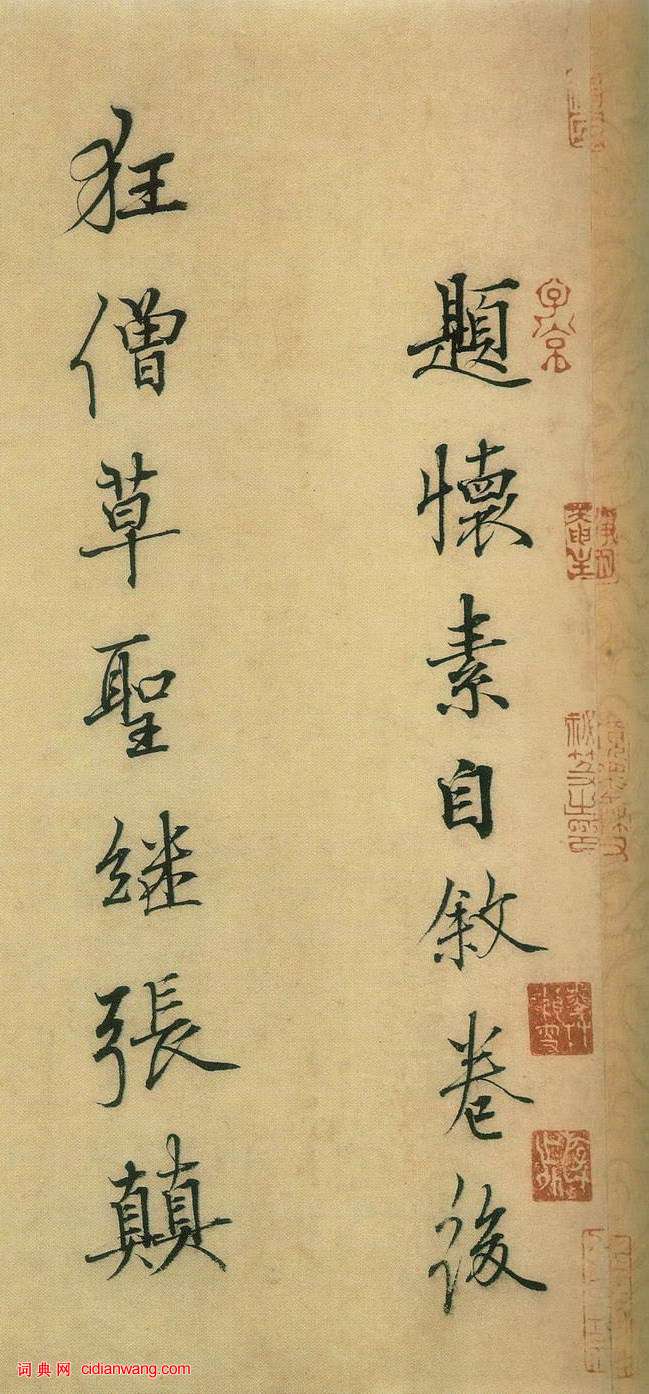 題懷素自敘卷後
狂僧草聖継張顛
子京
词典网 cidianwang.com